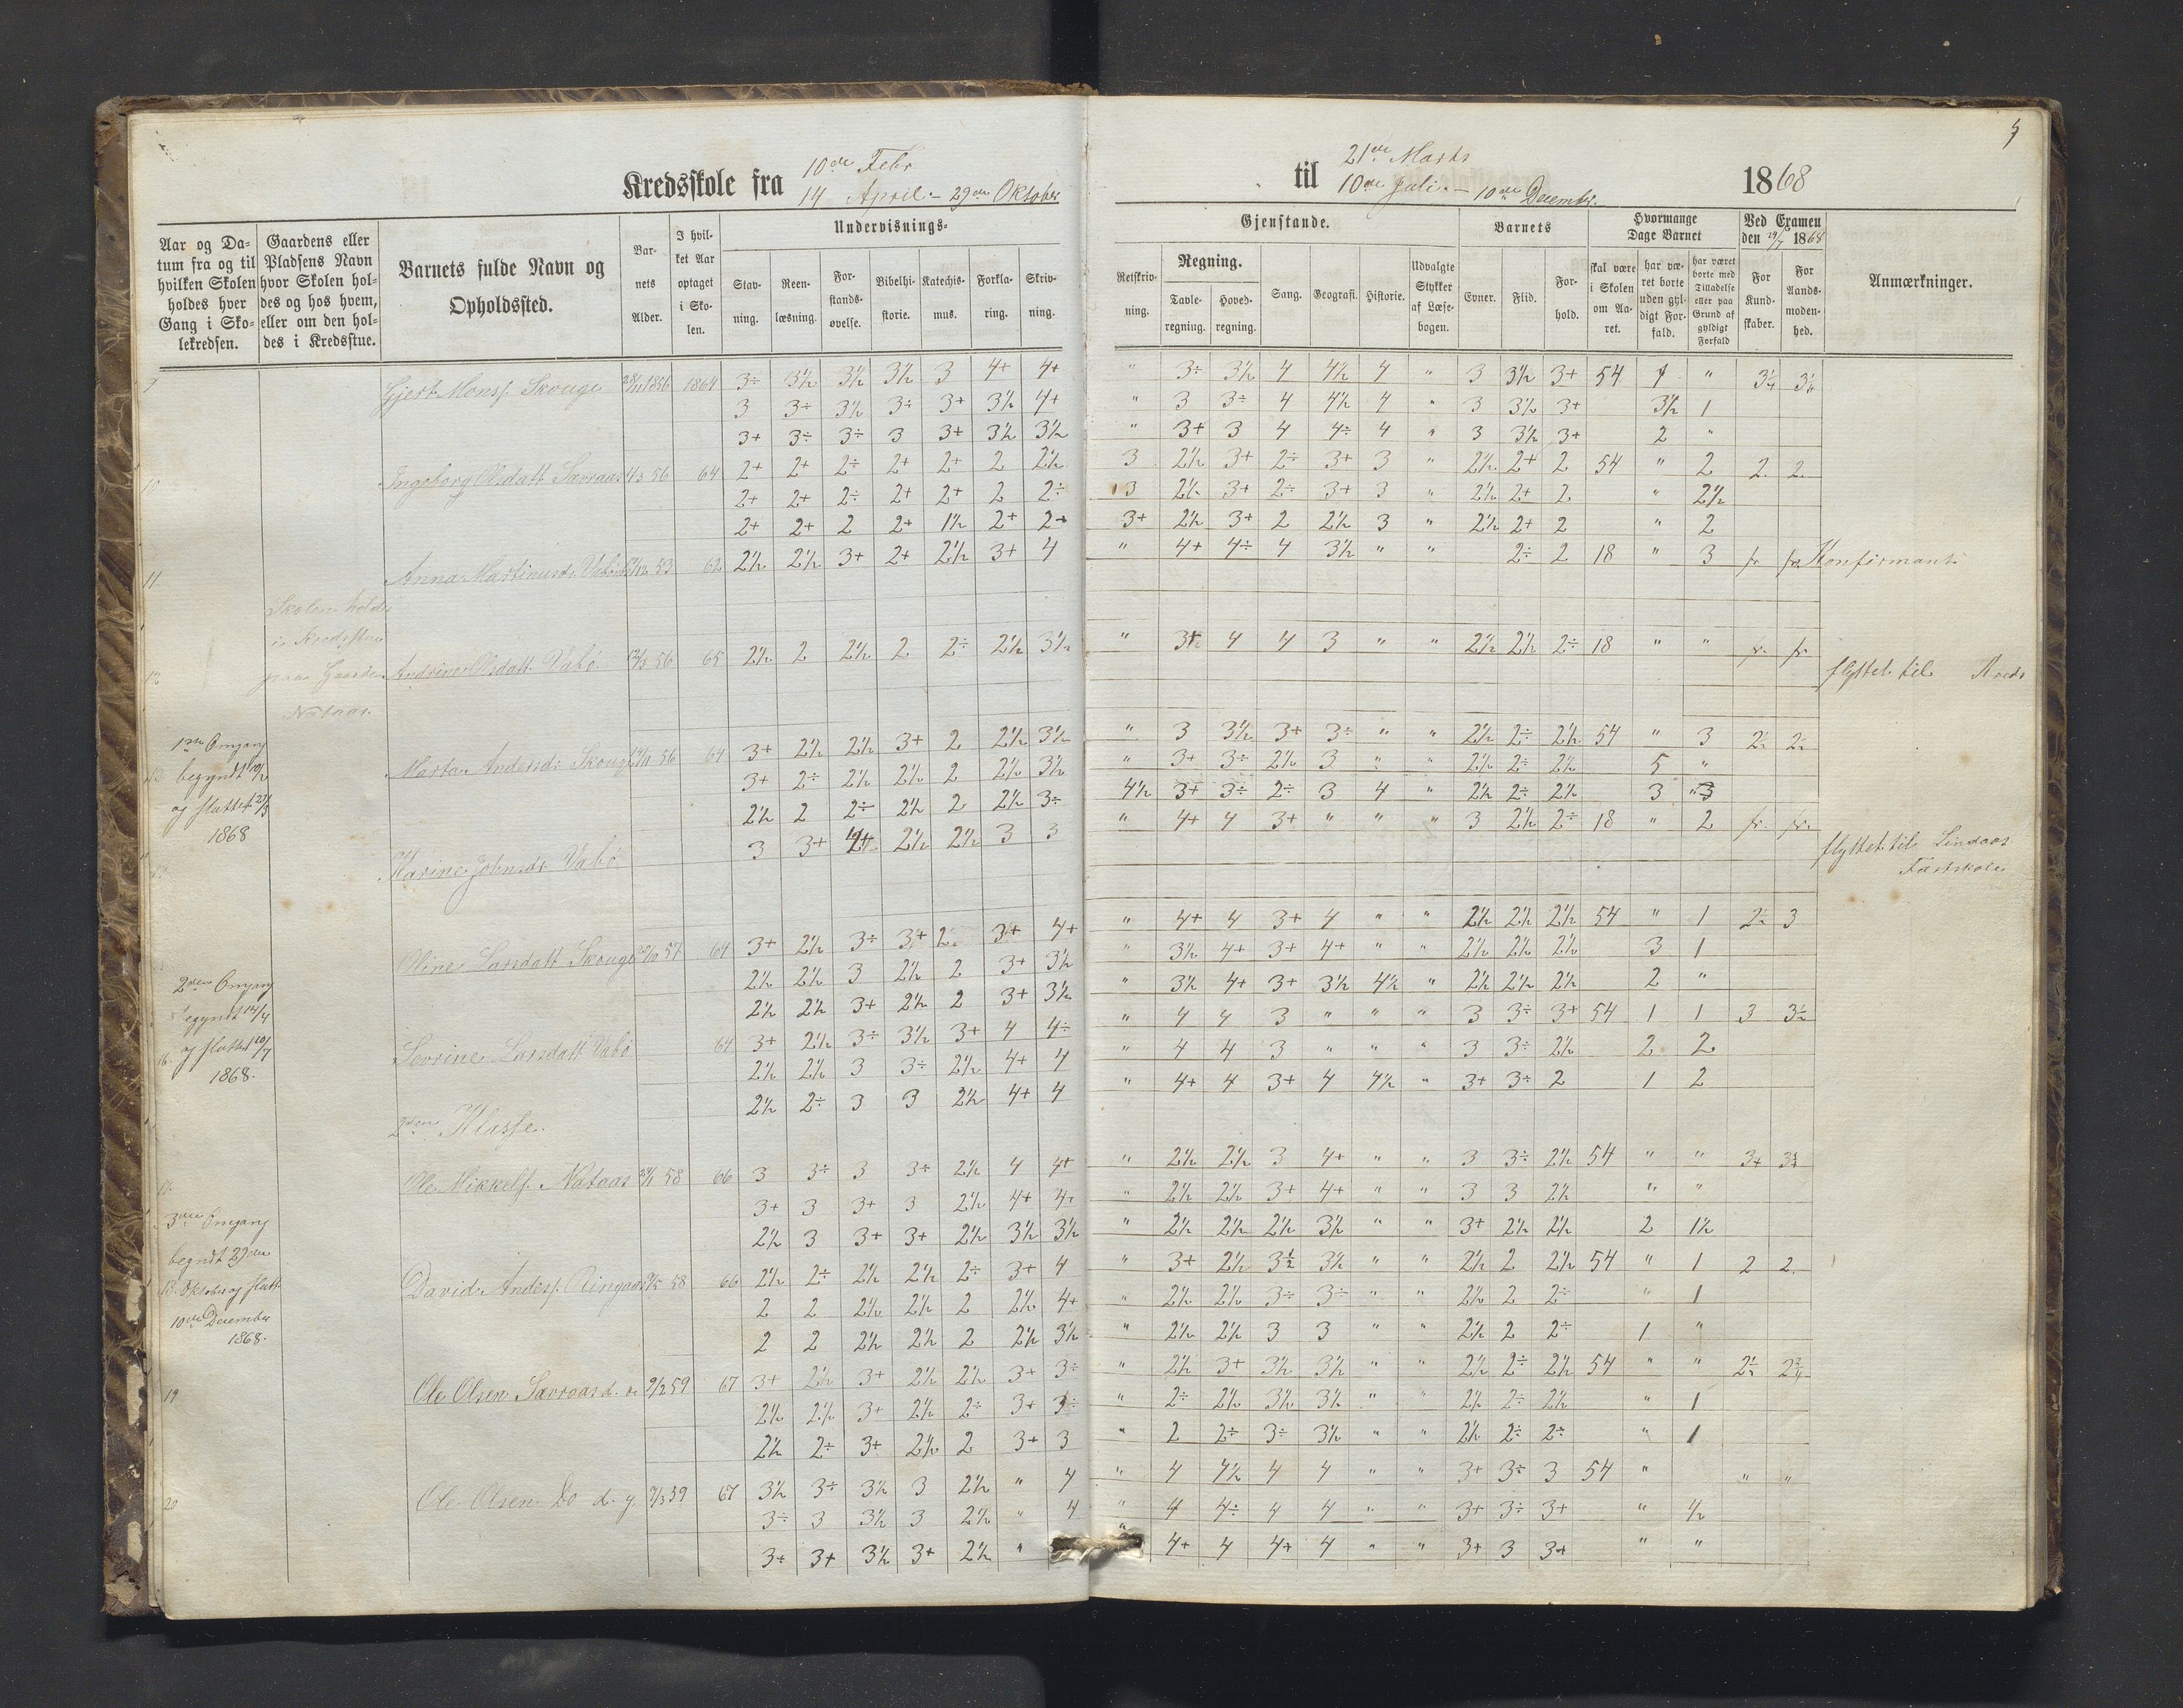 Kredsskole fra 10de Febr
14 April - 29de Oktober
til 21de Marts
10de Juli - 10de December.
1868
Aar og Datum fra og til hvilken Skolen holdes hver Gang i Skolekredsen.
Gaardens eller Pladsens Navn hvor Skolen holdes og hos hvem, eller om den holdes i Kredsstue.
Barnets fulde Navn og Opholdssted.
Barnets Alder.
I hvilket Aar optaget i Skolen.
Undervisnings-
Stavning.
Reenlæsning.
Forstandsøvelse.
Bibelhistorie.
Katechismus.
Forklaring.
Skrivning.
Gjenstande.
Retskrivning.
Regning.
Tavleregning.
Hovedregning.
Sang.
Geografi.
Historie.
Udvalgte Stykker af Læsebogen.
Barnets
Evner.
Flid.
Forhold.
Hvormange Dage Barnet
skal være i Skolen om Aaret.
har været borte uden gyldigt Forfald.
har været borte med Tilladelse eller paa Grund af gyldigt Forfald
Ved Examen den 19/7 1868
For Kundskaber.
For Aandsmodenhed.
Anmærkninger.
Gjert Monss. Skouge 28/11 1856 1864 3÷ 3½ 3½ 3½ 3 4+ 4+ " 3÷ 3½ 4 4½ 4 " 3 3½ 3+ 54 4 "
3 3÷ 3½ 3÷ 3+ 3½ 4+ " 3 3÷ 4 4½ 4 " 3 3½ 3+ 3½ 1
3+ 3÷ 3÷ 3 3+ 3½ 3½ " 3+ 3 4 4÷ 4 " 3 3½ 3+ 2 "
10 Ingeborg Olsdatt Sævraas 56 64 2+ 2+ 2÷ 2+ 2+ 2 2½ 3 2½ 3+ 2÷ 3+ 3 " 2½ 2+ 2 54 " 2 2 2
2+ 2+ 2÷ 2+ 2+ 2 2÷ 3 2½ 3+ 2÷ 3+ 3 " 2½ 2+ 2 " 2½
2+ 2+ 2 2+ 1½ 2+ 2+ 3+ 2½ 3+ 2 2½ 3 " 2½ 2+ 2 " 2
11 Anna Martinusdr Vabø 53 62 2½ 2½ 3+ 2+ 2½ 3+ 4 " 4+ 4÷ 4 3½ " " 2÷ 2 18 " 3 fr fr Konfirmant
Skolen holdes
i Kredsstue
paa Gaarden
Nataas.
12 Andrine Olsdatt Vabø 56 65 2½ 2 2½ 2 2÷ 2½ 3½ " 3+ 4 4 3 " " 2½ 2½ 2÷ 18 " " fr. fr flyttet til Kreds
1ste Omgang
begyndt 10/2
og sluttet 21/3
1868
Marta Andersdr Skouge 56 64 3+ 2½ 2½ 3+ 2 2½ 3½ " 3 3½ 3+ 3÷ " " 2½ 2÷ 2½ 54 " 3 2½ 2½
3+ 2÷ 2½ 2½ 2 2½ 3½ " 3+ 3÷ 2½ 3 " " 2½ 2÷ 2½ 5 "
2½ 2 2÷ 2½ 2 2½ 3÷ 4½ 3+ 3÷ 2÷ 3 4 " 2½ 2÷ 2½ 3 3
Karine Johnsdr Vabø 3 3+ 2½ 2½ 3 3 " 4+ 4 3+ " " " 3 2½ 2÷ 18 " 2 fr. fr. flyttet til Lindaas
Fastskole
Oline Larsdatt Skouge 57 64 3+ 2½ 3÷ 3+ 2 3+ 4+ " 4+ 4 3+ 4 " " 2½ 2½ 2½ 54 " 1 2½ 3
2½ 2½ 3 2½ 2 3+ 3½ " 3½ 4+ 3+ 4+ " " 2½ 2½ 2½ 3 1
2½ 2½ 3+ 2½ 2 3+ 3½ " 3½ 4+ 3+ 3½ 4½ " 2½ 2½ 2½ 2 "
2den Omgang
begyndt 14/4
og sluttet 10/7
1868.
16. Sevrine Larsdatt Vabø 64 3+ 2½ 3÷ 3½ 3+ 4 4÷ " 4 4 3 " " " 3 3÷ 3+ 54 1 1 3 3½
2½ 2½ 3 3÷ 2½ 4+ 4 " 4 4 3 " " " 3 3÷ 2½ 2 2
2½ 2÷ 3 3 2½ 4+ 4 " 4+ 4 3+ 4 4½ " 3+ 3÷ 2 1 2
2den Klasse.
Ole Mikkels. Nataas 58 66 3 3÷ 3 3÷ 2½ 4 4+ " 2½ 2½ 3 4+ " " 3 3÷ 2½ 54 " "
3+ 3 3+ 3 2½ 4+ 4+ " 2½ 2½ 3+ 4+ " " 3 3 2½ " "
2½ 3 3+ 3+ 2½ 3½ 3½ " 2½ 2½ 2½ 3½ " " 3+ 2½ 2½ 2 1½
3die Omgang
begndt 29de
Oktober og slutt
10de December
1868.
David Anders. Ringaas 58 66 2½ 2÷ 2½ 2½ 2÷ 3+ 4 " 3+ 2½ 3½ 3½ " " 2½ 2 2½ 54 " 1 2 2
2 2 2½ 2½ 2 2½ 4+ " 2½ 2½ 3÷ 3÷ " " 2½ 2 2÷ " 1
2 2 2½ 2½ 2 2½ 3½ " 2½ 2½ 3 3 " " 2½ 2 2÷ 1 "
19 Ole Olsen Sævraas d. æ 9/2 59 67 3+ 2½ 3+ 2½ 2½ 3+ 3÷ " 2½ 3+ 3½ 3½ " " 2½ 2÷ 2½ 54 " "
2½ 2½ 3+ 2½ 2÷ 3+ 3÷ " 2÷ 2½ 3½ 3½ " " 2½ 2÷ 2½ " 1
2½ 2÷ 3+ 2½ 2 3+ 3 " 2 2÷ 3÷ 3½ " " 2½ 2÷ 2÷ " 1
20 Ole Olsen Do d. y. 9/3 59 67 3½ 3÷ 3½ 3 2½ " 4 " 4 4½ 4 4 " " 3+ 3÷ 3 54 " " "
3÷ 3 3½ 3 2½ " 4 " 4 4÷ 4 4 " " 3+ 3÷ 3+ " ½
3+ 3+ 3½ 3+ 2½ " " 4+ 4 4+ 4 " " 3+ 3 3+ " "